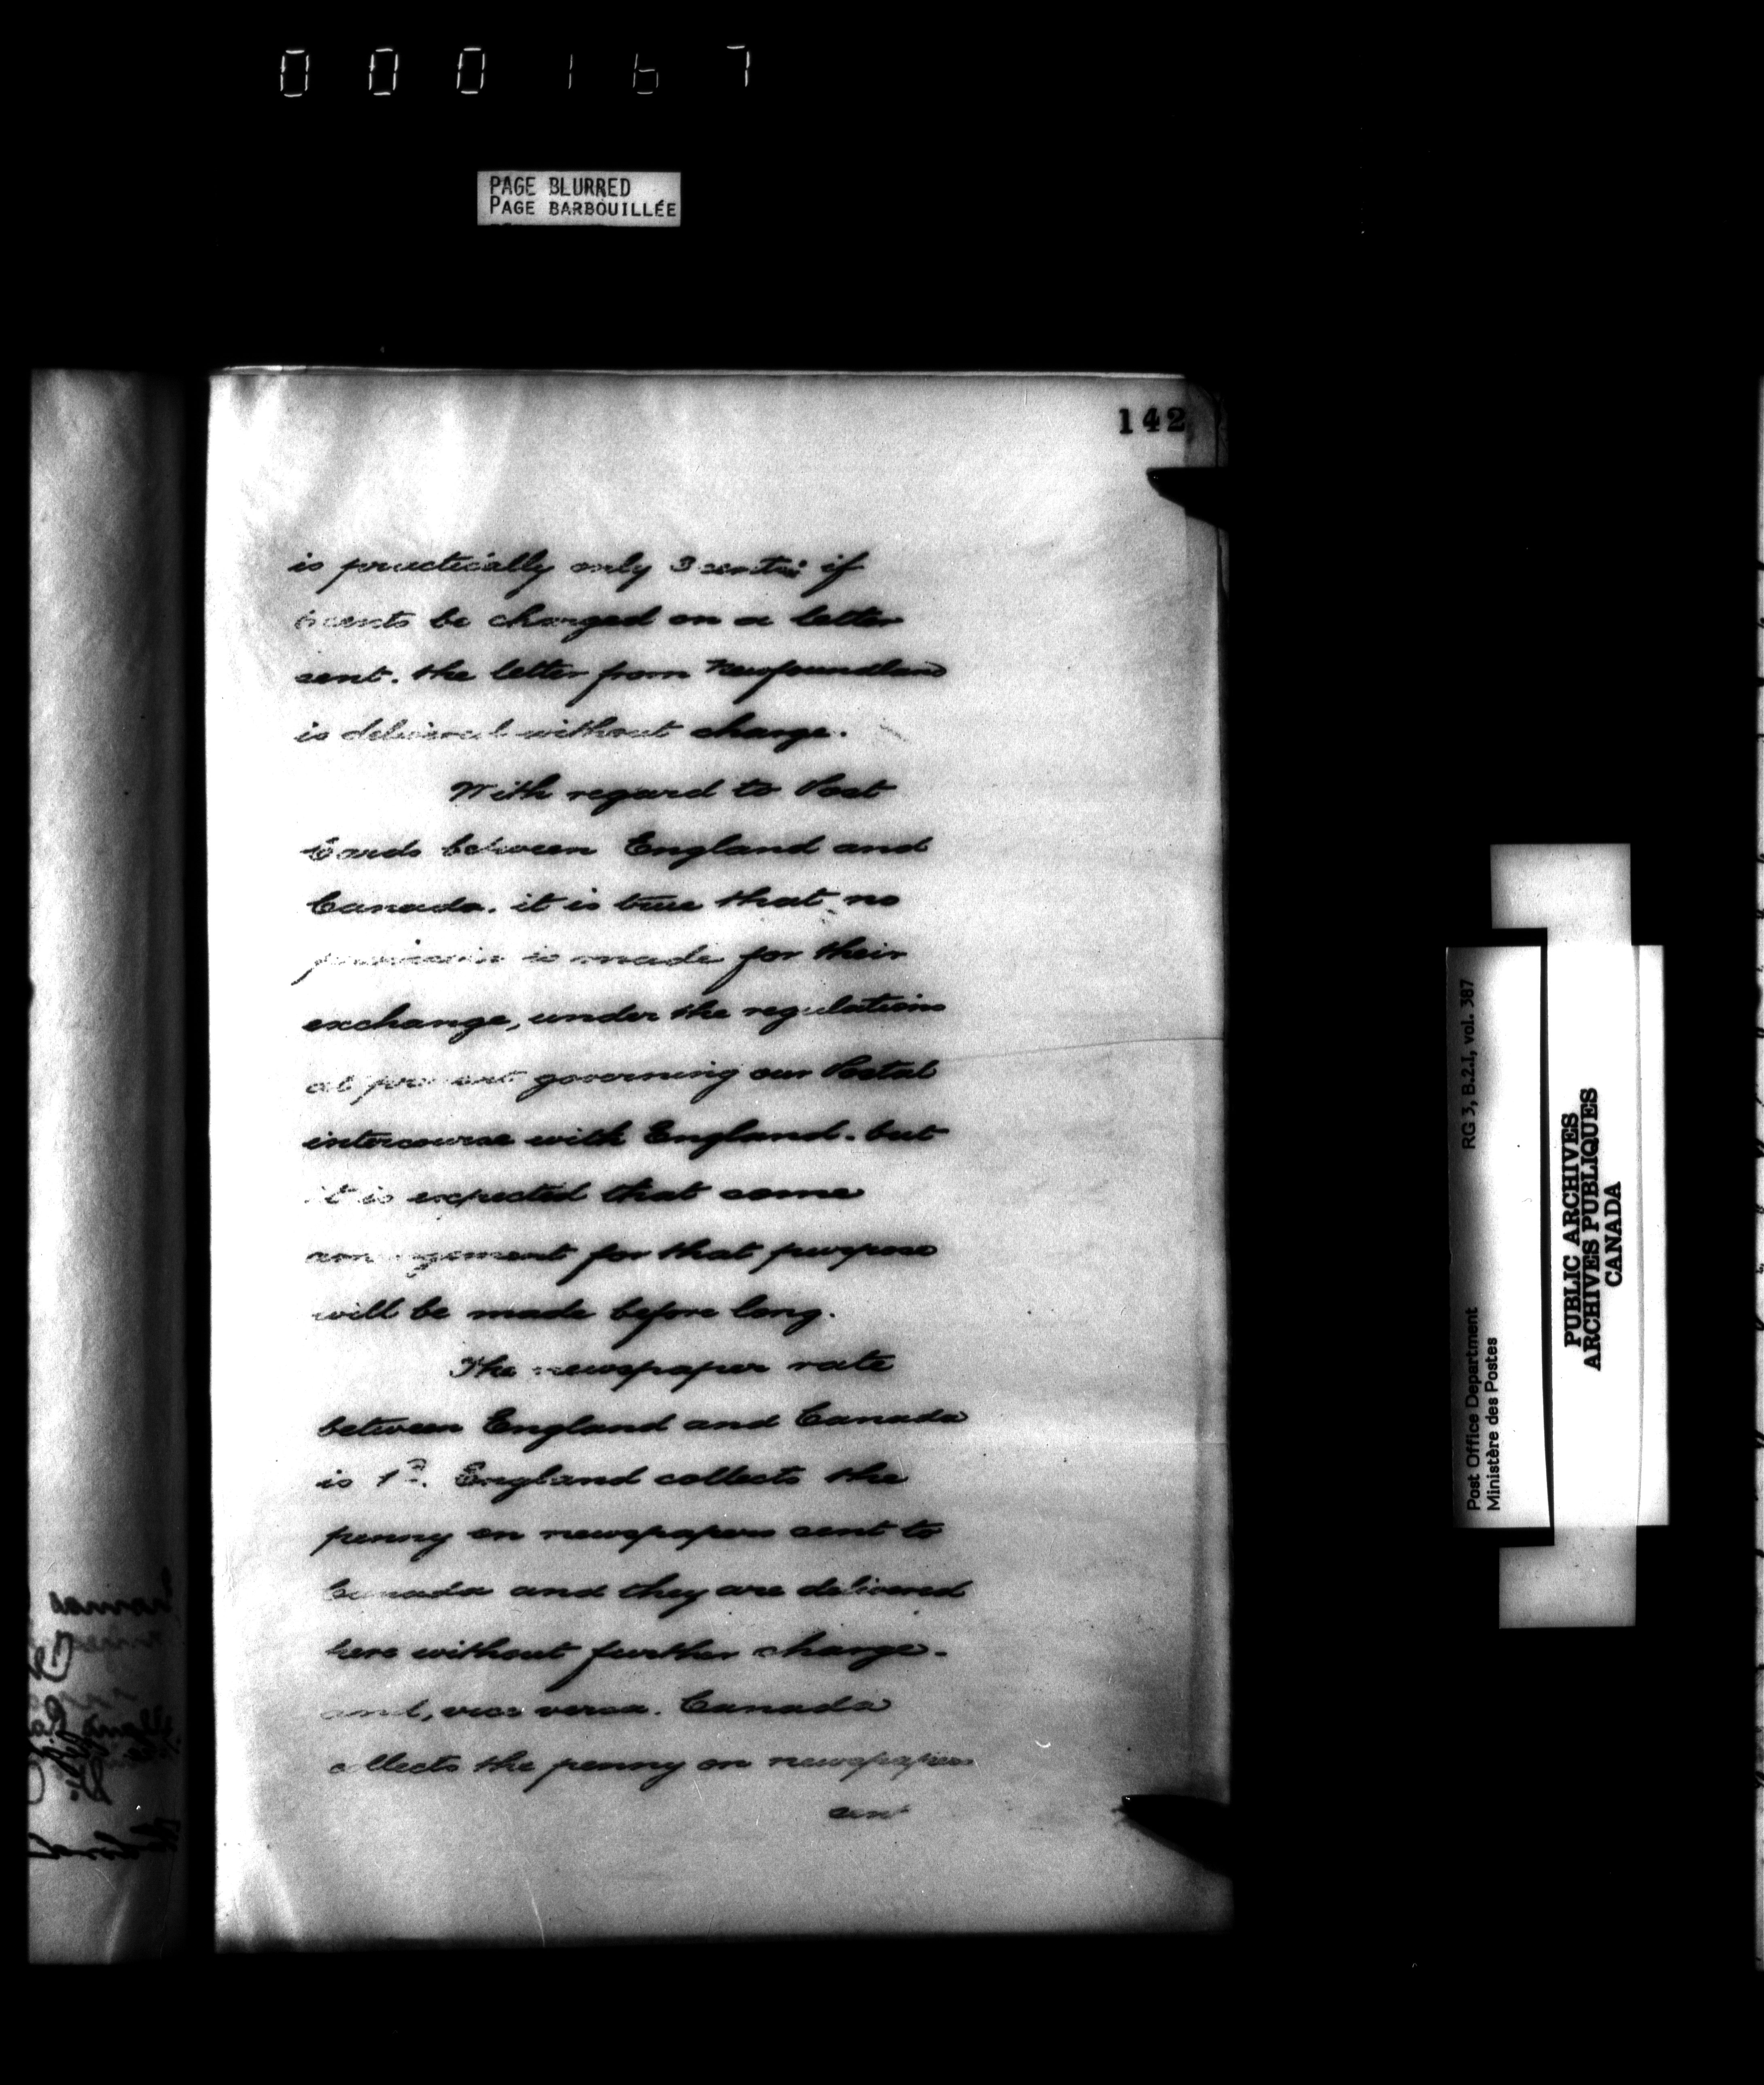 000167
PAGE BLURRED
PAGE BARBOUILLÉE
142
is practically only 3 cents; if
cents be charged on a letter
sent. the letter from Newfoundland
is delivered without charge.
With regard to Post
Cards between England and
Canada. it is true that no
provision is made for their
exchange, under the regulations
at present governing our Postal
intercourse with England. but
it is expected that some
arrangement for that purpose
will be made before long.
The newspaper rate
between England and Canada
is 1d. England collects the
penny on newspapers sent to
Canada and they are delivered
here without further charge.
and, vice versa. Canada
collects the penny on newspapers
sent
RG 3, B.2.I, vol. 387
Post Office Department
Ministère des Postes
PUBLIC ARCHIVES
ARCHIVES PUBLIQUES
CANADA